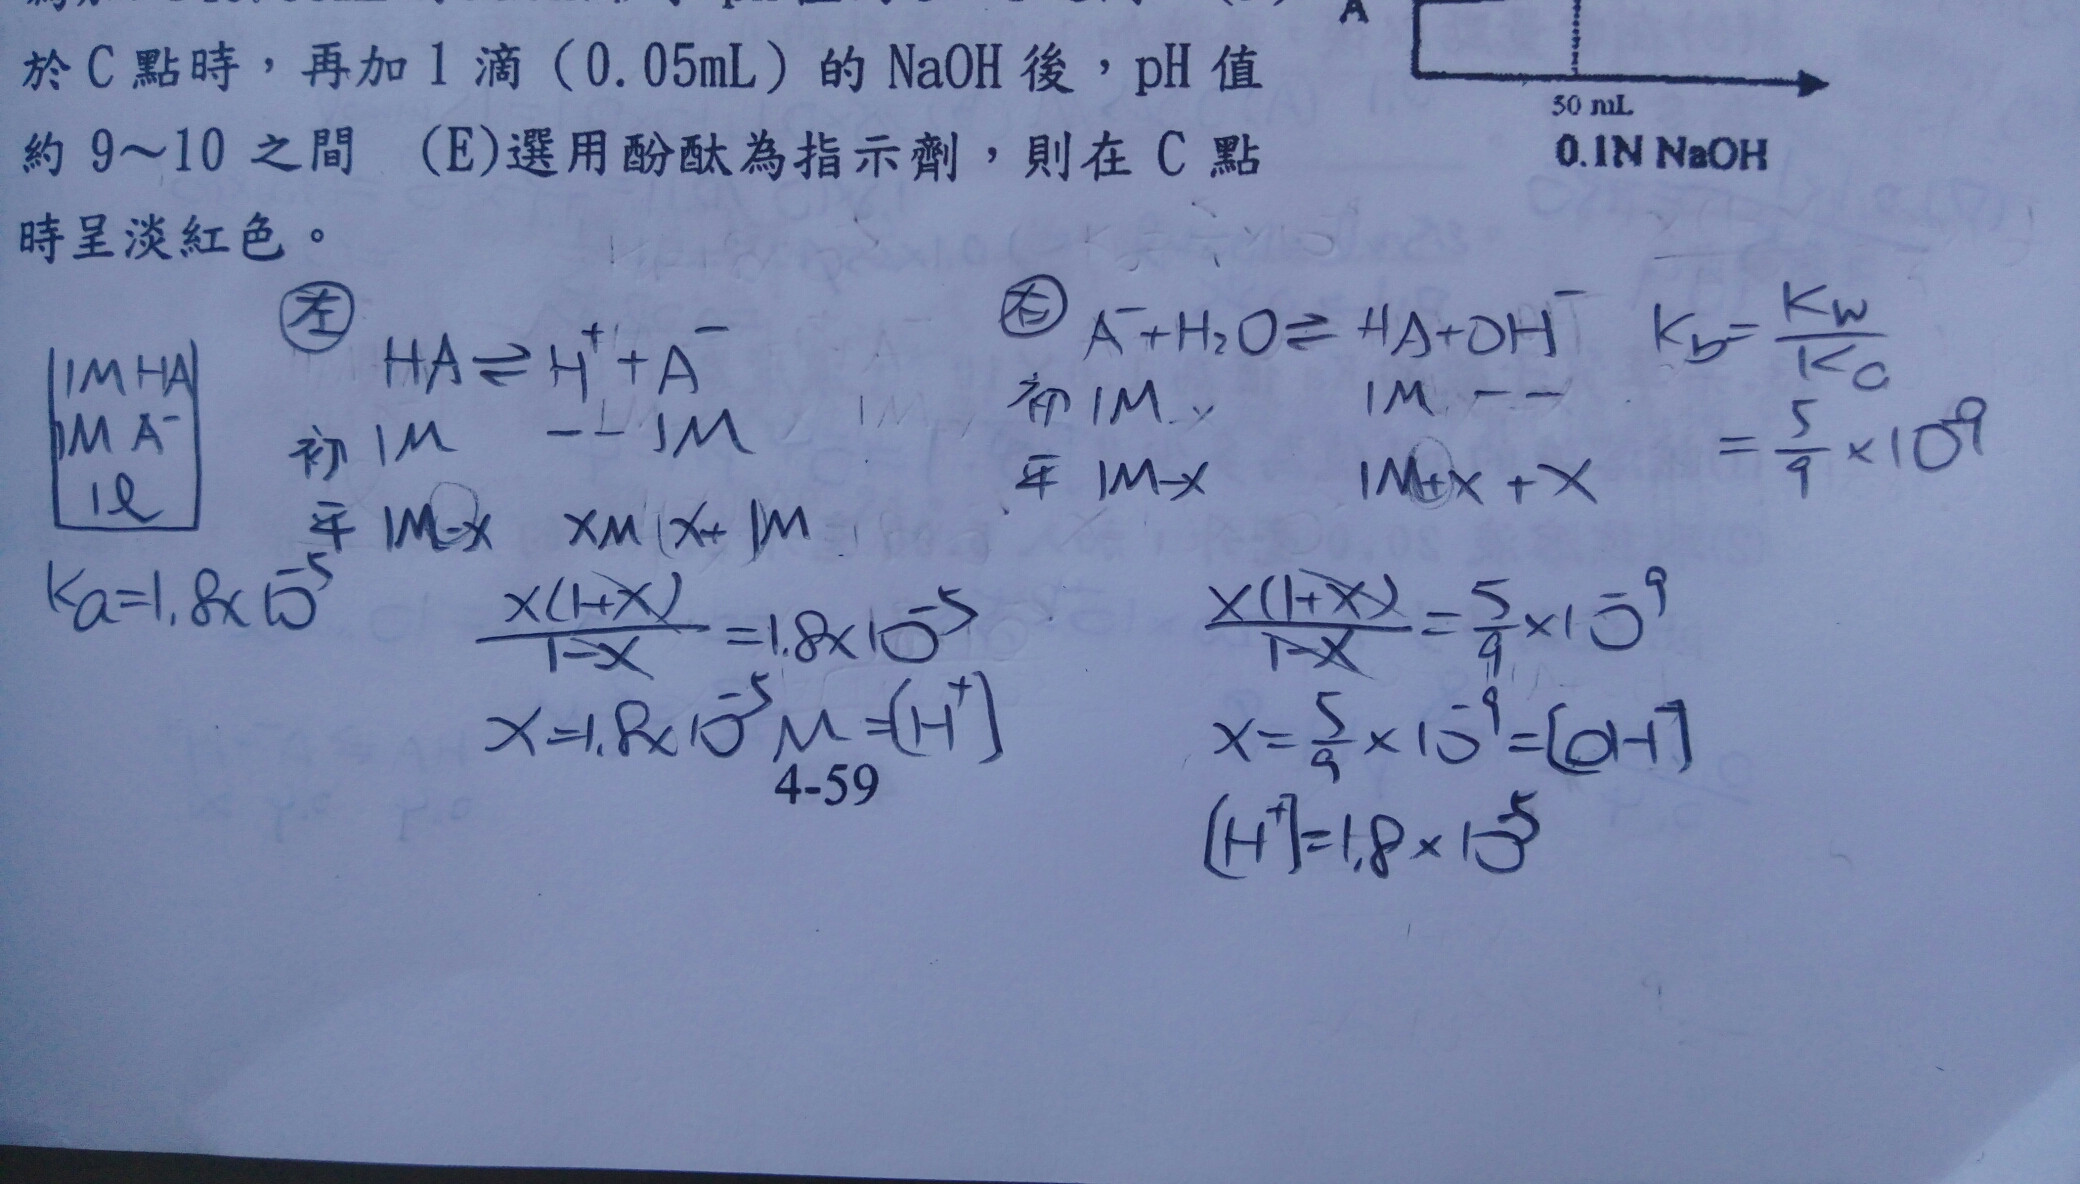 A
於 C 點時，再加 1 滴（0.05mL）的 NaOH 後，pH 值
約 9～10 之間 (E)選用酚酞為指示劑，則在 C 點
時呈淡紅色。
50 mL
0.1N NaOH
左
HA⇌H⁺+A⁻
初 1M -- 1M
平 1M-x xM x+1M
1M HA
1M A⁻
1ℓ
Ka=1.8×10⁻⁵
x(1+x)/1-x =1.8×10⁻⁵
x=1.8×10⁻⁵M=[H⁺]
右
A⁻+H₂O⇌HA+OH⁻
初 1M 1M --
平 1M-x 1M+x +x
Kb=Kw/Ka
=5/9×10⁻⁹
x(1+x)/1-x=5/9×10⁻⁹
x=5/9×10⁻⁹=[OH⁻]
[H⁺]=1.8×10⁻⁵
4-59